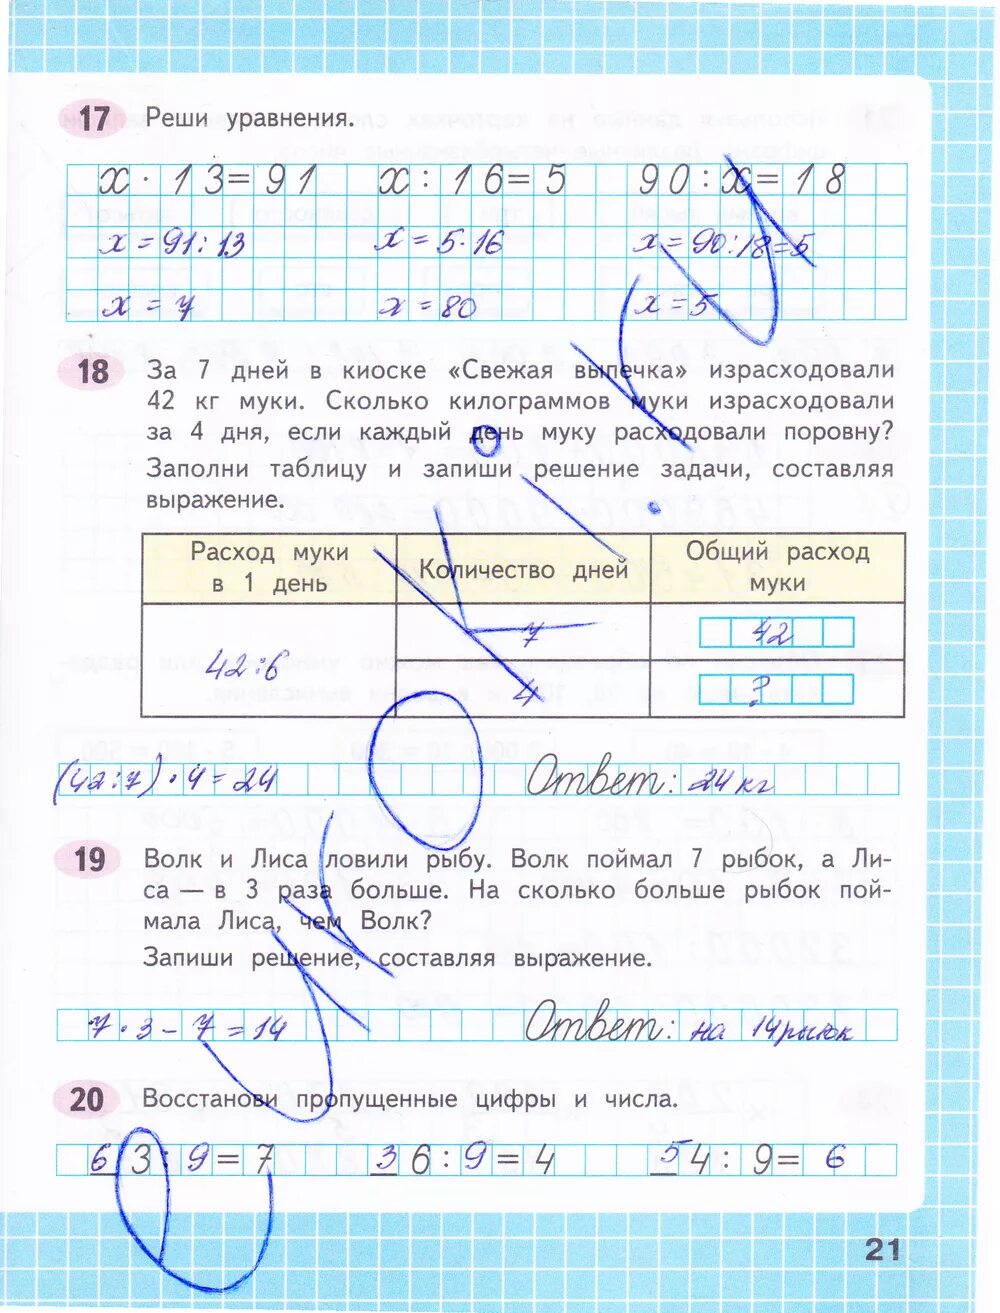 17 Реши уравнения.
x · 13 = 91 x : 16 = 5 90 : x = 18
x = 91 : 13 x = 5 · 16 x = 90 : 18 = 5
x = 7 x = 80 x = 5
18 За 7 дней в киоске «Свежая выпечка» израсходовали
42 кг муки. Сколько килограммов муки израсходовали
за 4 дня, если каждый день муку расходовали поровну?
Заполни таблицу и запиши решение задачи, составляя
выражение.
Расход муки
в 1 день
Количество дней
Общий расход
муки
42 : 6
7
42
4
?
(42 : 7) · 4 = 24 Ответ: 24 кг
19 Волк и Лиса ловили рыбу. Волк поймал 7 рыбок, а Ли-
са — в 3 раза больше. На сколько больше рыбок пой-
мала Лиса, чем Волк?
Запиши решение, составляя выражение.
7 · 3 - 7 = 14 Ответ: на 14 рыбок
20 Восстанови пропущенные цифры и числа.
63 : 9 = 7 36 : 9 = 4 54 : 9 = 6
21